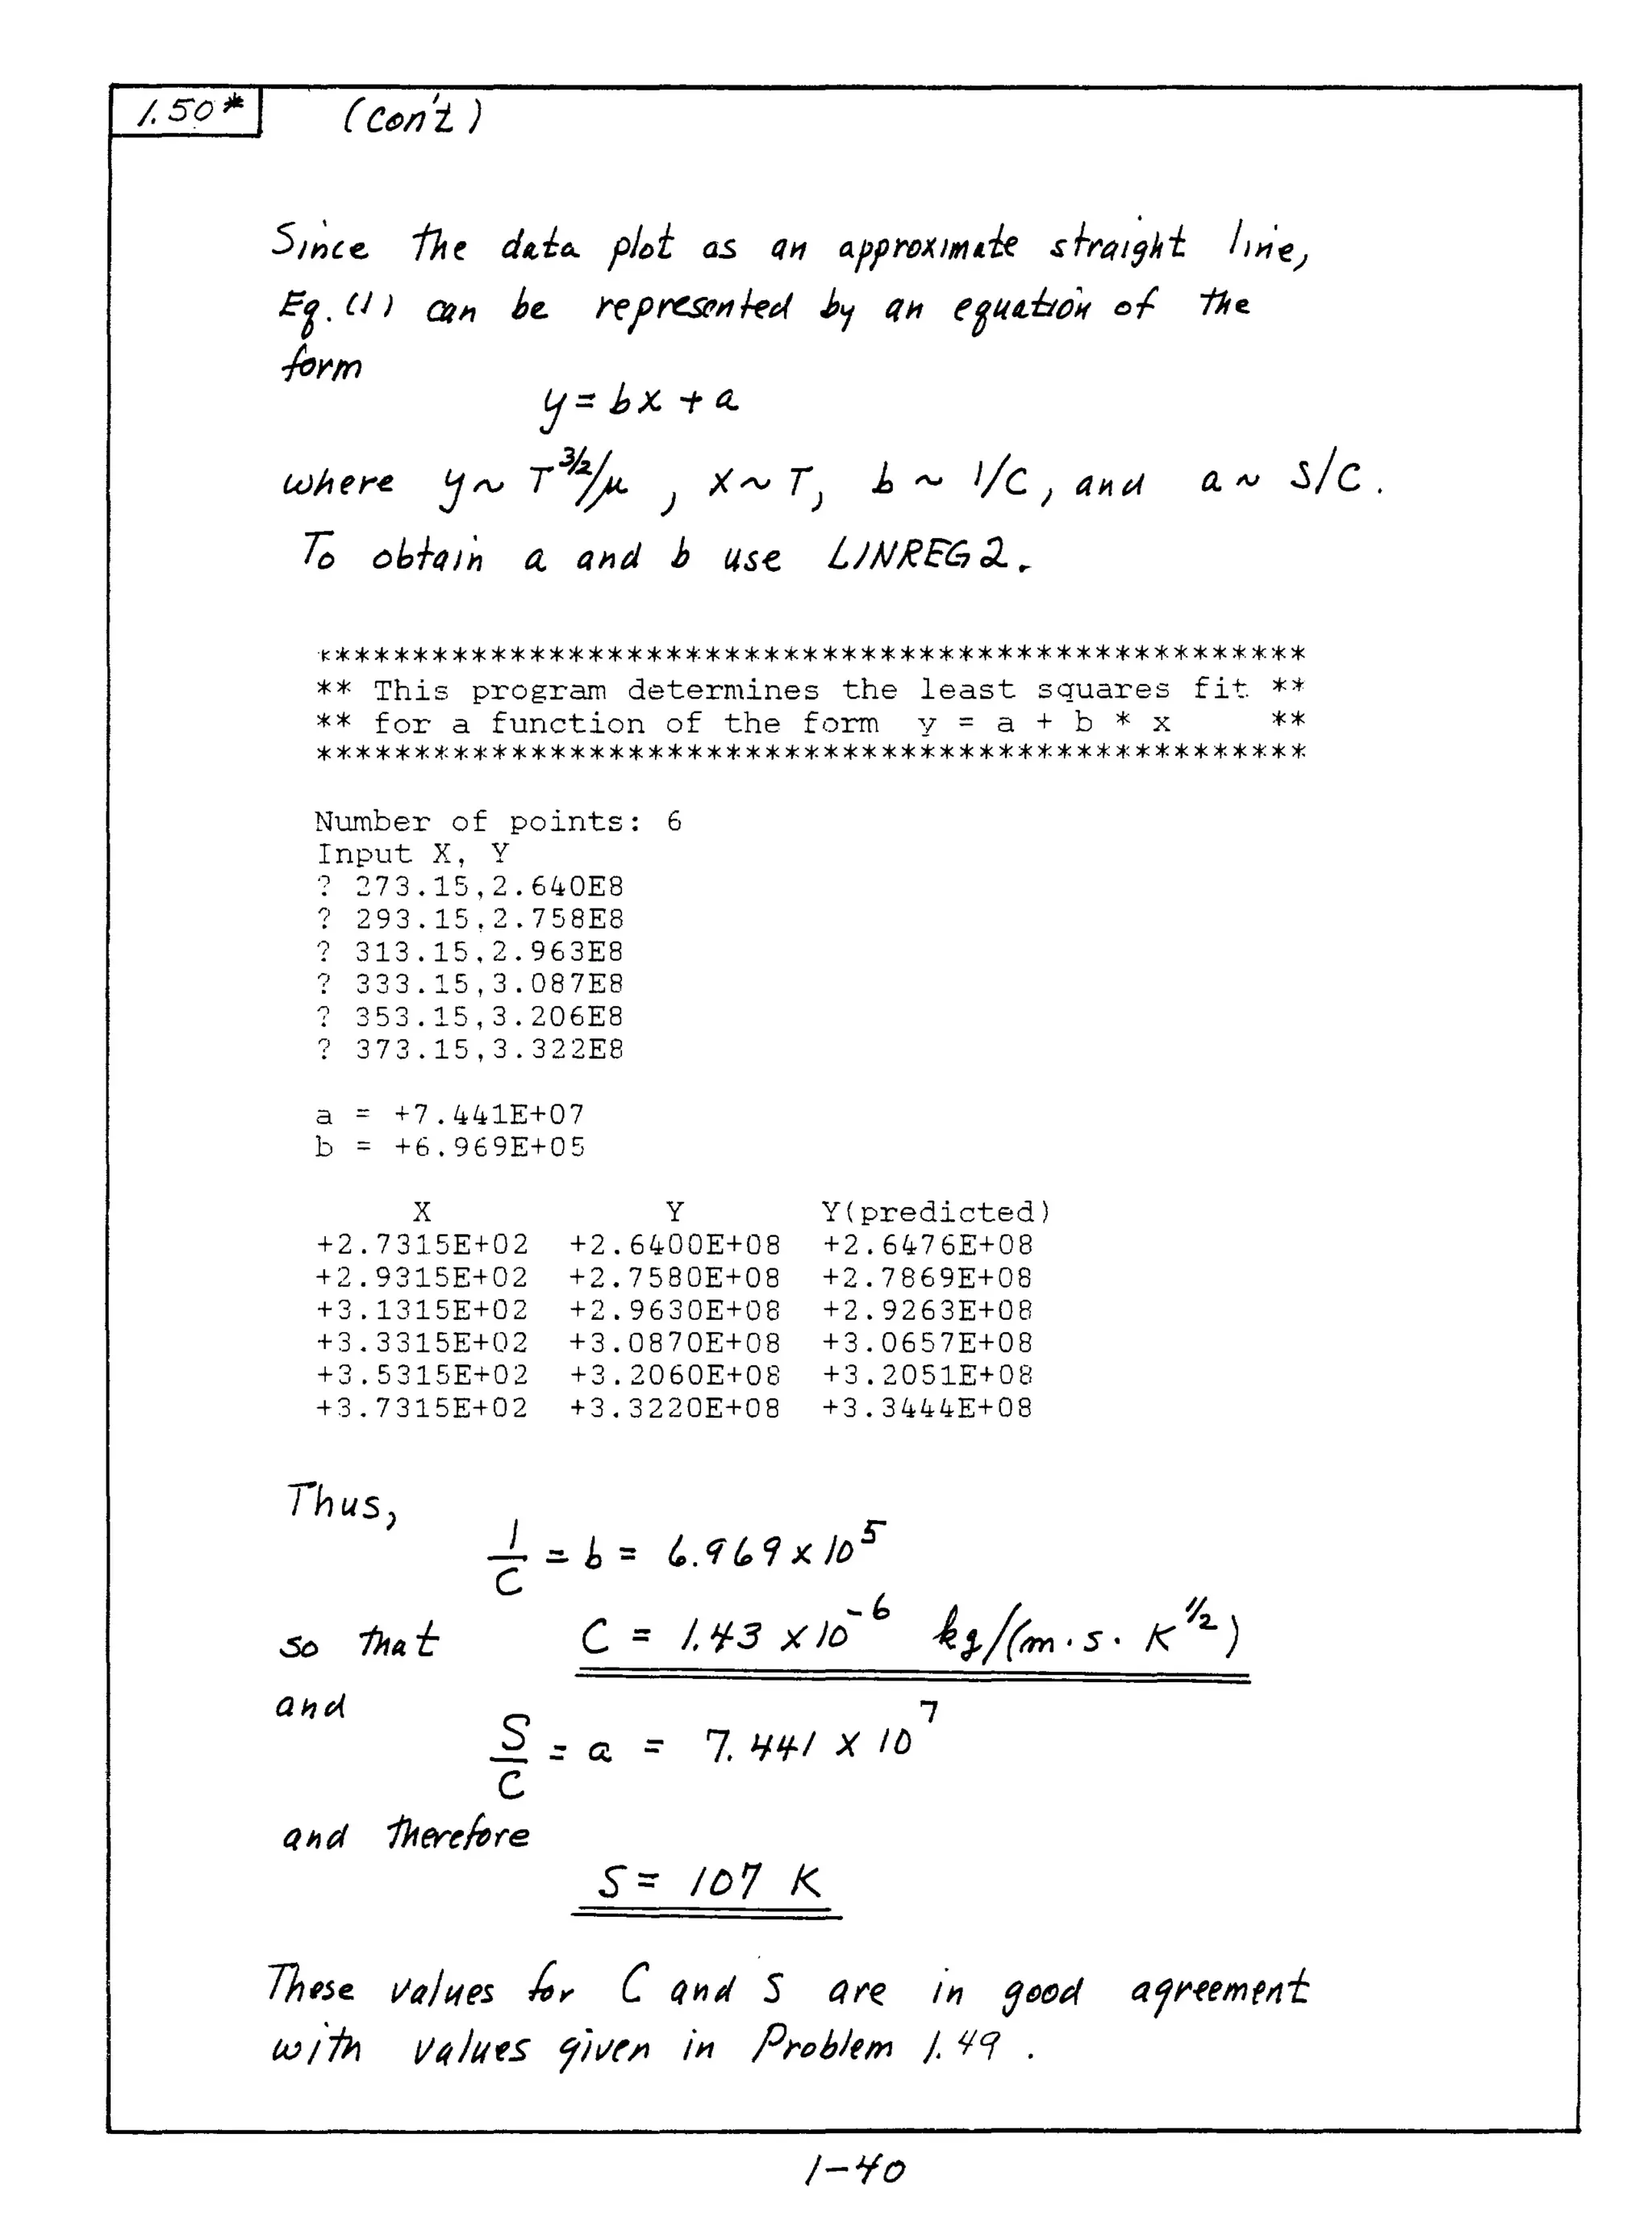 1.50*
(Con't)
Since the data plot as an approximate straight line,
Eq. (1) can be represented by an equation of the
form
y = bx + a
where y ~ T^3/2/μ , x ~ T, b ~ 1/C, and a ~ S/C.
To obtain a and b use LINREG2.
***************************************************
** This program determines the least squares fit **
** for a function of the form y = a + b * x **
***************************************************
Number of points: 6
Input X, Y
? 273.15,2.640E8
? 293.15,2.758E8
? 313.15,2.963E8
? 333.15,3.087E8
? 353.15,3.206E8
? 373.15,3.322E8
a = +7.441E+07
b = +6.969E+05
X Y Y(predicted)
+2.7315E+02 +2.6400E+08 +2.6476E+08
+2.9315E+02 +2.7580E+08 +2.7869E+08
+3.1315E+02 +2.9630E+08 +2.9263E+08
+3.3315E+02 +3.0870E+08 +3.0657E+08
+3.5315E+02 +3.2060E+08 +3.2051E+08
+3.7315E+02 +3.3220E+08 +3.3444E+08
Thus,
1/C = b = 6.969 x 10^5
so that C = 1.43 x 10^-6 kg/(m·s·K^1/2)
and
S/C = a = 7.441 x 10^7
and therefore
S = 107 K
These values for C and S are in good agreement
with values given in Problem 1.49 .
1-40